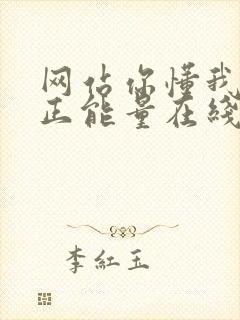 网站你懂我
正能量在线
李红玉